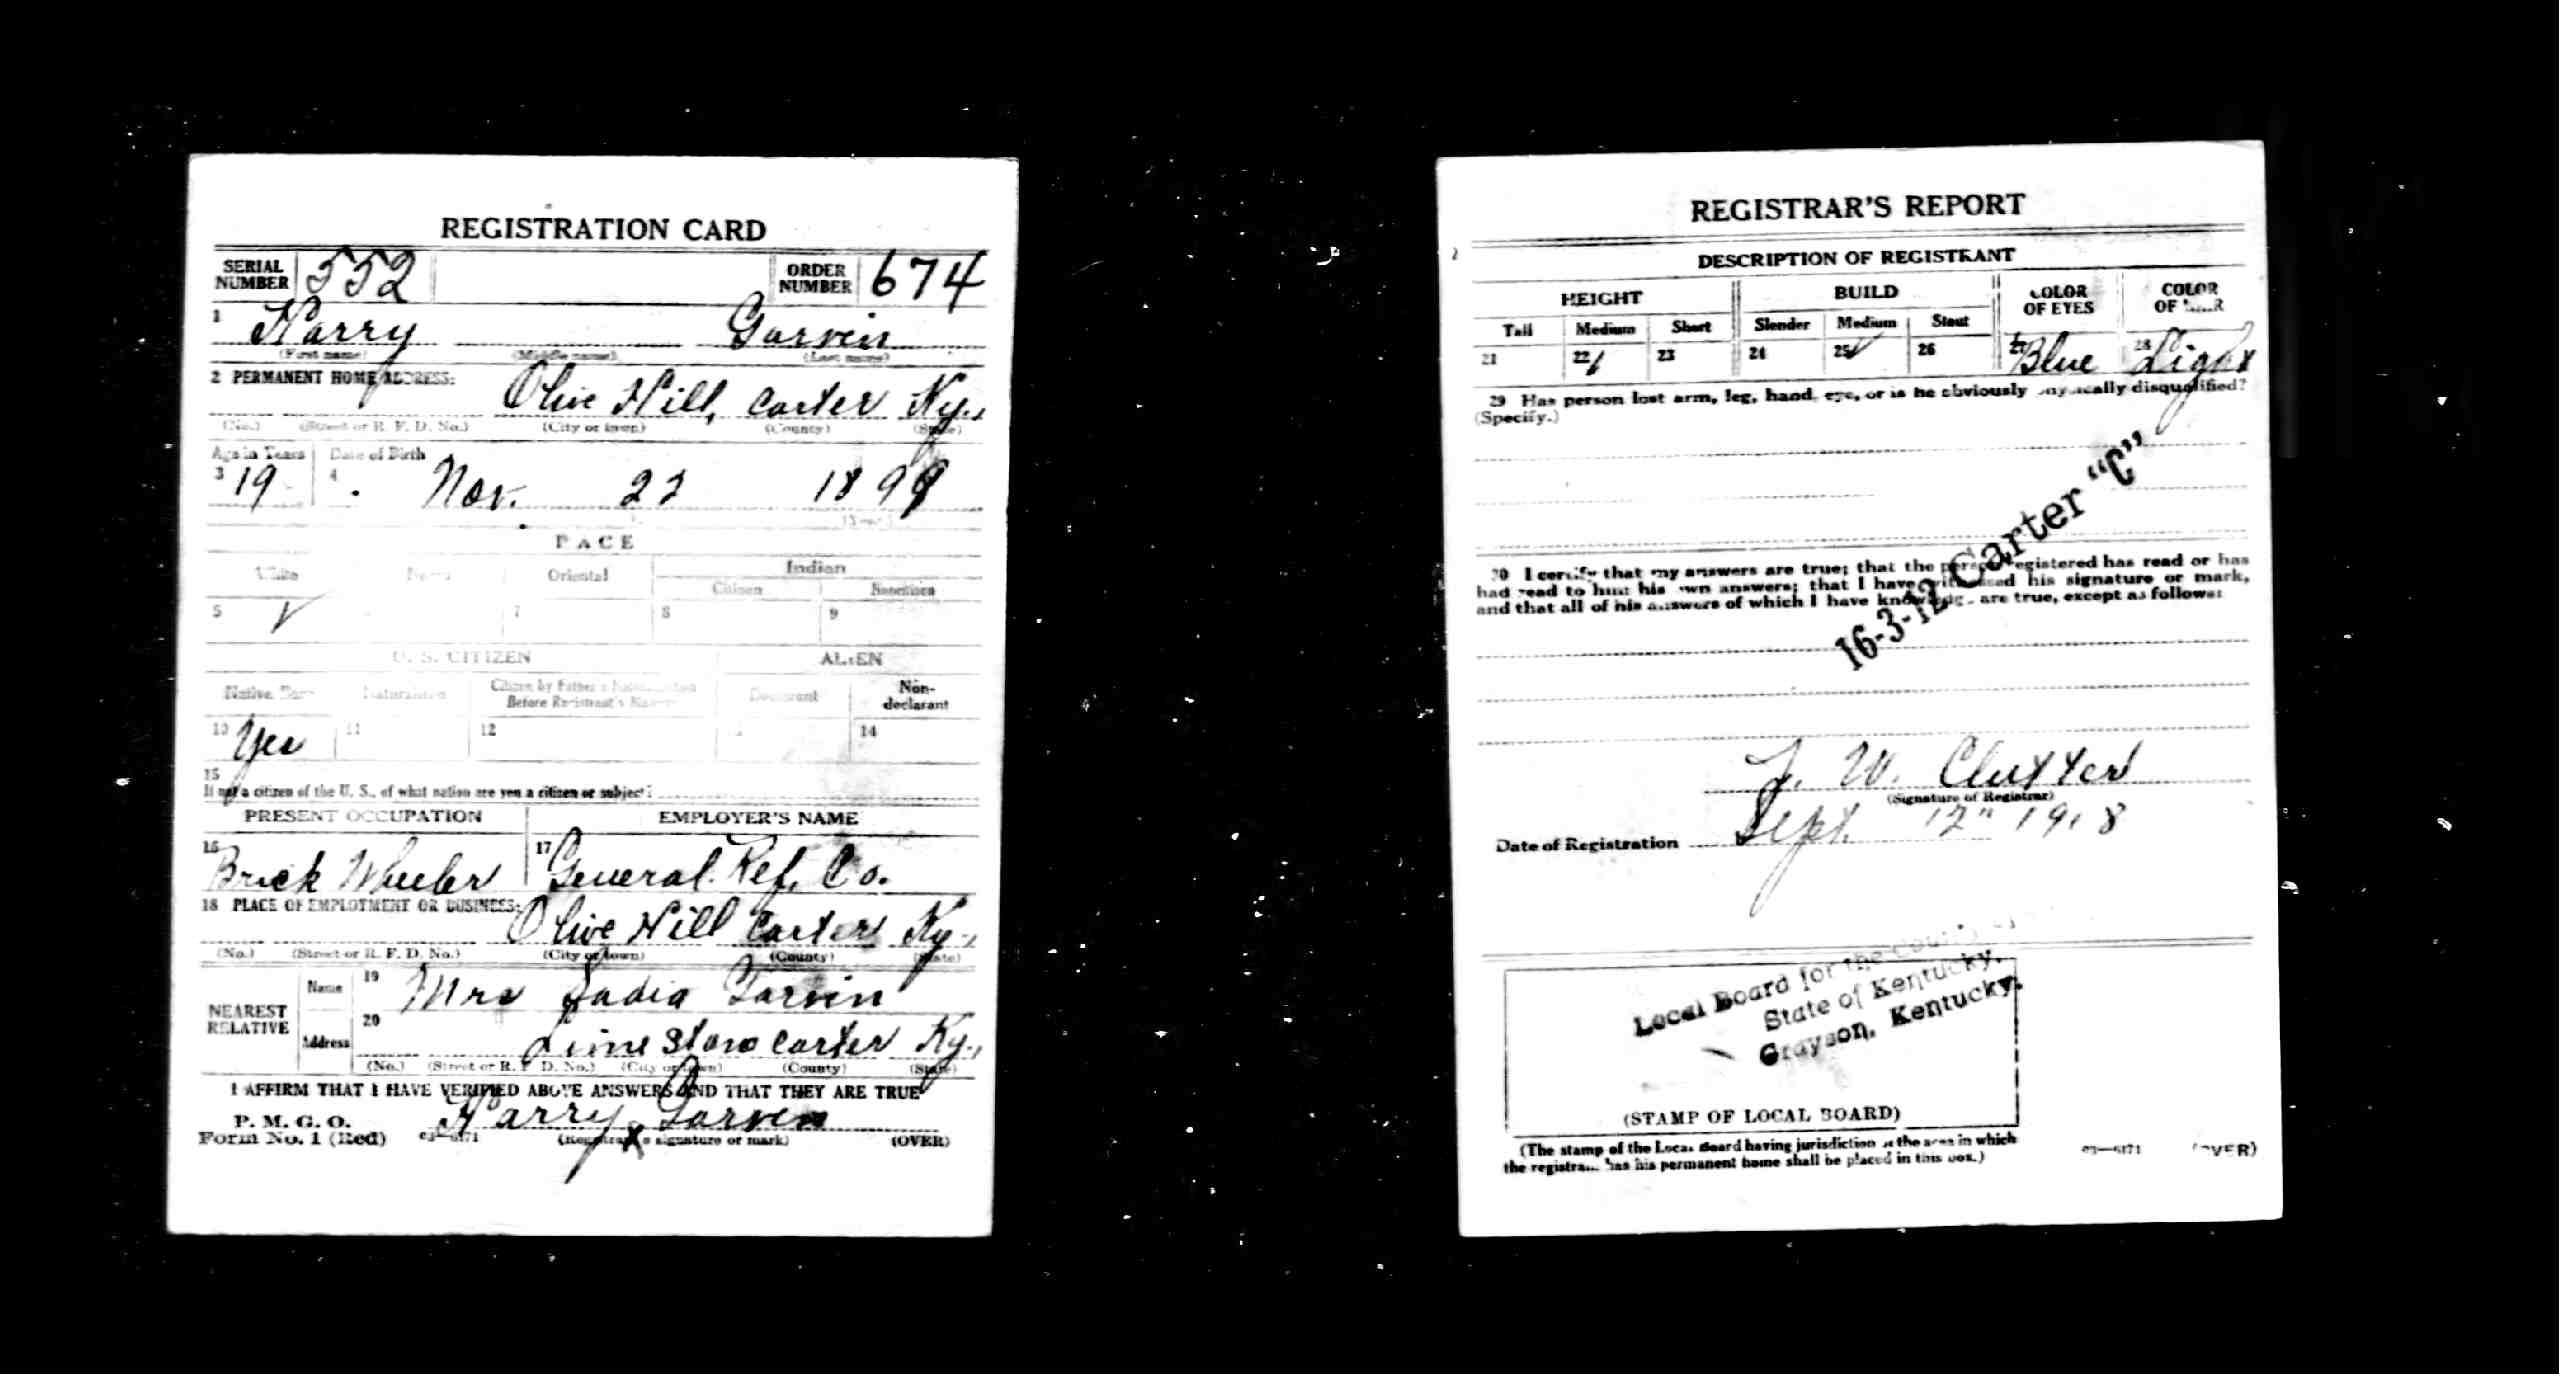 REGISTRATION CARD
SERIAL NUMBER 552 ORDER NUMBER 674
1 Harry Garvin
(First name) (Middle name) (Last name)
2 PERMANENT HOME ADDRESS:
Olive Hill, Carter Ky.,
(No.) (Street or R. F. D. No.) (City or town) (County) (State)
Age in Years Date of Birth
3 19 4 Nov. 22 1899
(Year)
RACE
White Negro Oriental Indian
Citizen Noncitizen
5 ✓ 7 8 9
U. S. CITIZEN ALIEN
Native Born Naturalized Citizen by Father's Naturalization Before Registrant's Majority Declarant Non-declarant
10 Yes 11 12 14
15
If not a citizen of the U. S., of what nation are you a citizen or subject?
PRESENT OCCUPATION EMPLOYER'S NAME
16 Brick Wheeler 17 General Ref. Co.
18 PLACE OF EMPLOYMENT OR BUSINESS:
Olive Hill Carter Ky.,
(No.) (Street or R. F. D. No.) (City or town) (County) (State)
NEAREST RELATIVE
Name 19 Mrs Sadia Garvin
Address 20 Lime Stone Carter Ky.,
(No.) (Street or R. F. D. No.) (City or town) (County) (State)
I AFFIRM THAT I HAVE VERIFIED ABOVE ANSWERS AND THAT THEY ARE TRUE
P. M. G. O.
Form No. 1 (Red) 03—6171 Harry Garvin
(Registrant's signature or mark) (OVER)
REGISTRAR'S REPORT
DESCRIPTION OF REGISTRANT
HEIGHT BUILD COLOR OF EYES COLOR OF HAIR
Tall Medium Short Slender Medium Stout
21 22 ✓ 23 24 25 ✓ 26 27 Blue 28 Light
29 Has person lost arm, leg, hand, eye, or is he obviously physically disqualified?
(Specify.)
16-3-12 Carter "C"
30 I certify that my answers are true; that the person registered has read or has
had read to him his own answers; that I have witnessed his signature or mark,
and that all of his answers of which I have knowledge are true, except as follows:
W. Clutter
(Signature of Registrar)
Date of Registration Sept. 12" 1918
Local Board for the County
State of Kentucky,
Grayson, Kentucky.
(STAMP OF LOCAL BOARD)
(The stamp of the Local Board having jurisdiction of the area in which
the registrant has his permanent home shall be placed in this box.)
03—6171 (OVER)